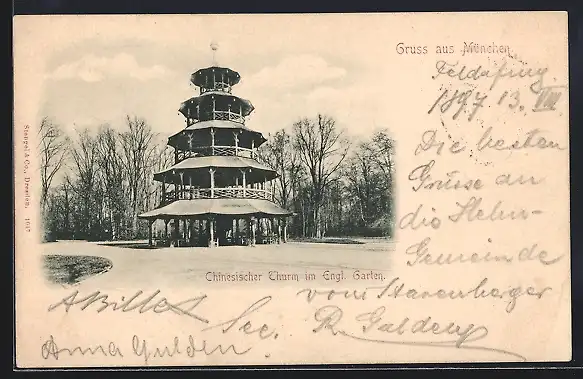 Gruss aus München.
Feldafing
1897 13. VIII.
Die besten
Grüsse an
die
Gemeinde
vom Starenberger
See.
Chinesischer Thurm im Engl. Garten.
Anna Gulden.
Stengel & Co., Dresden,